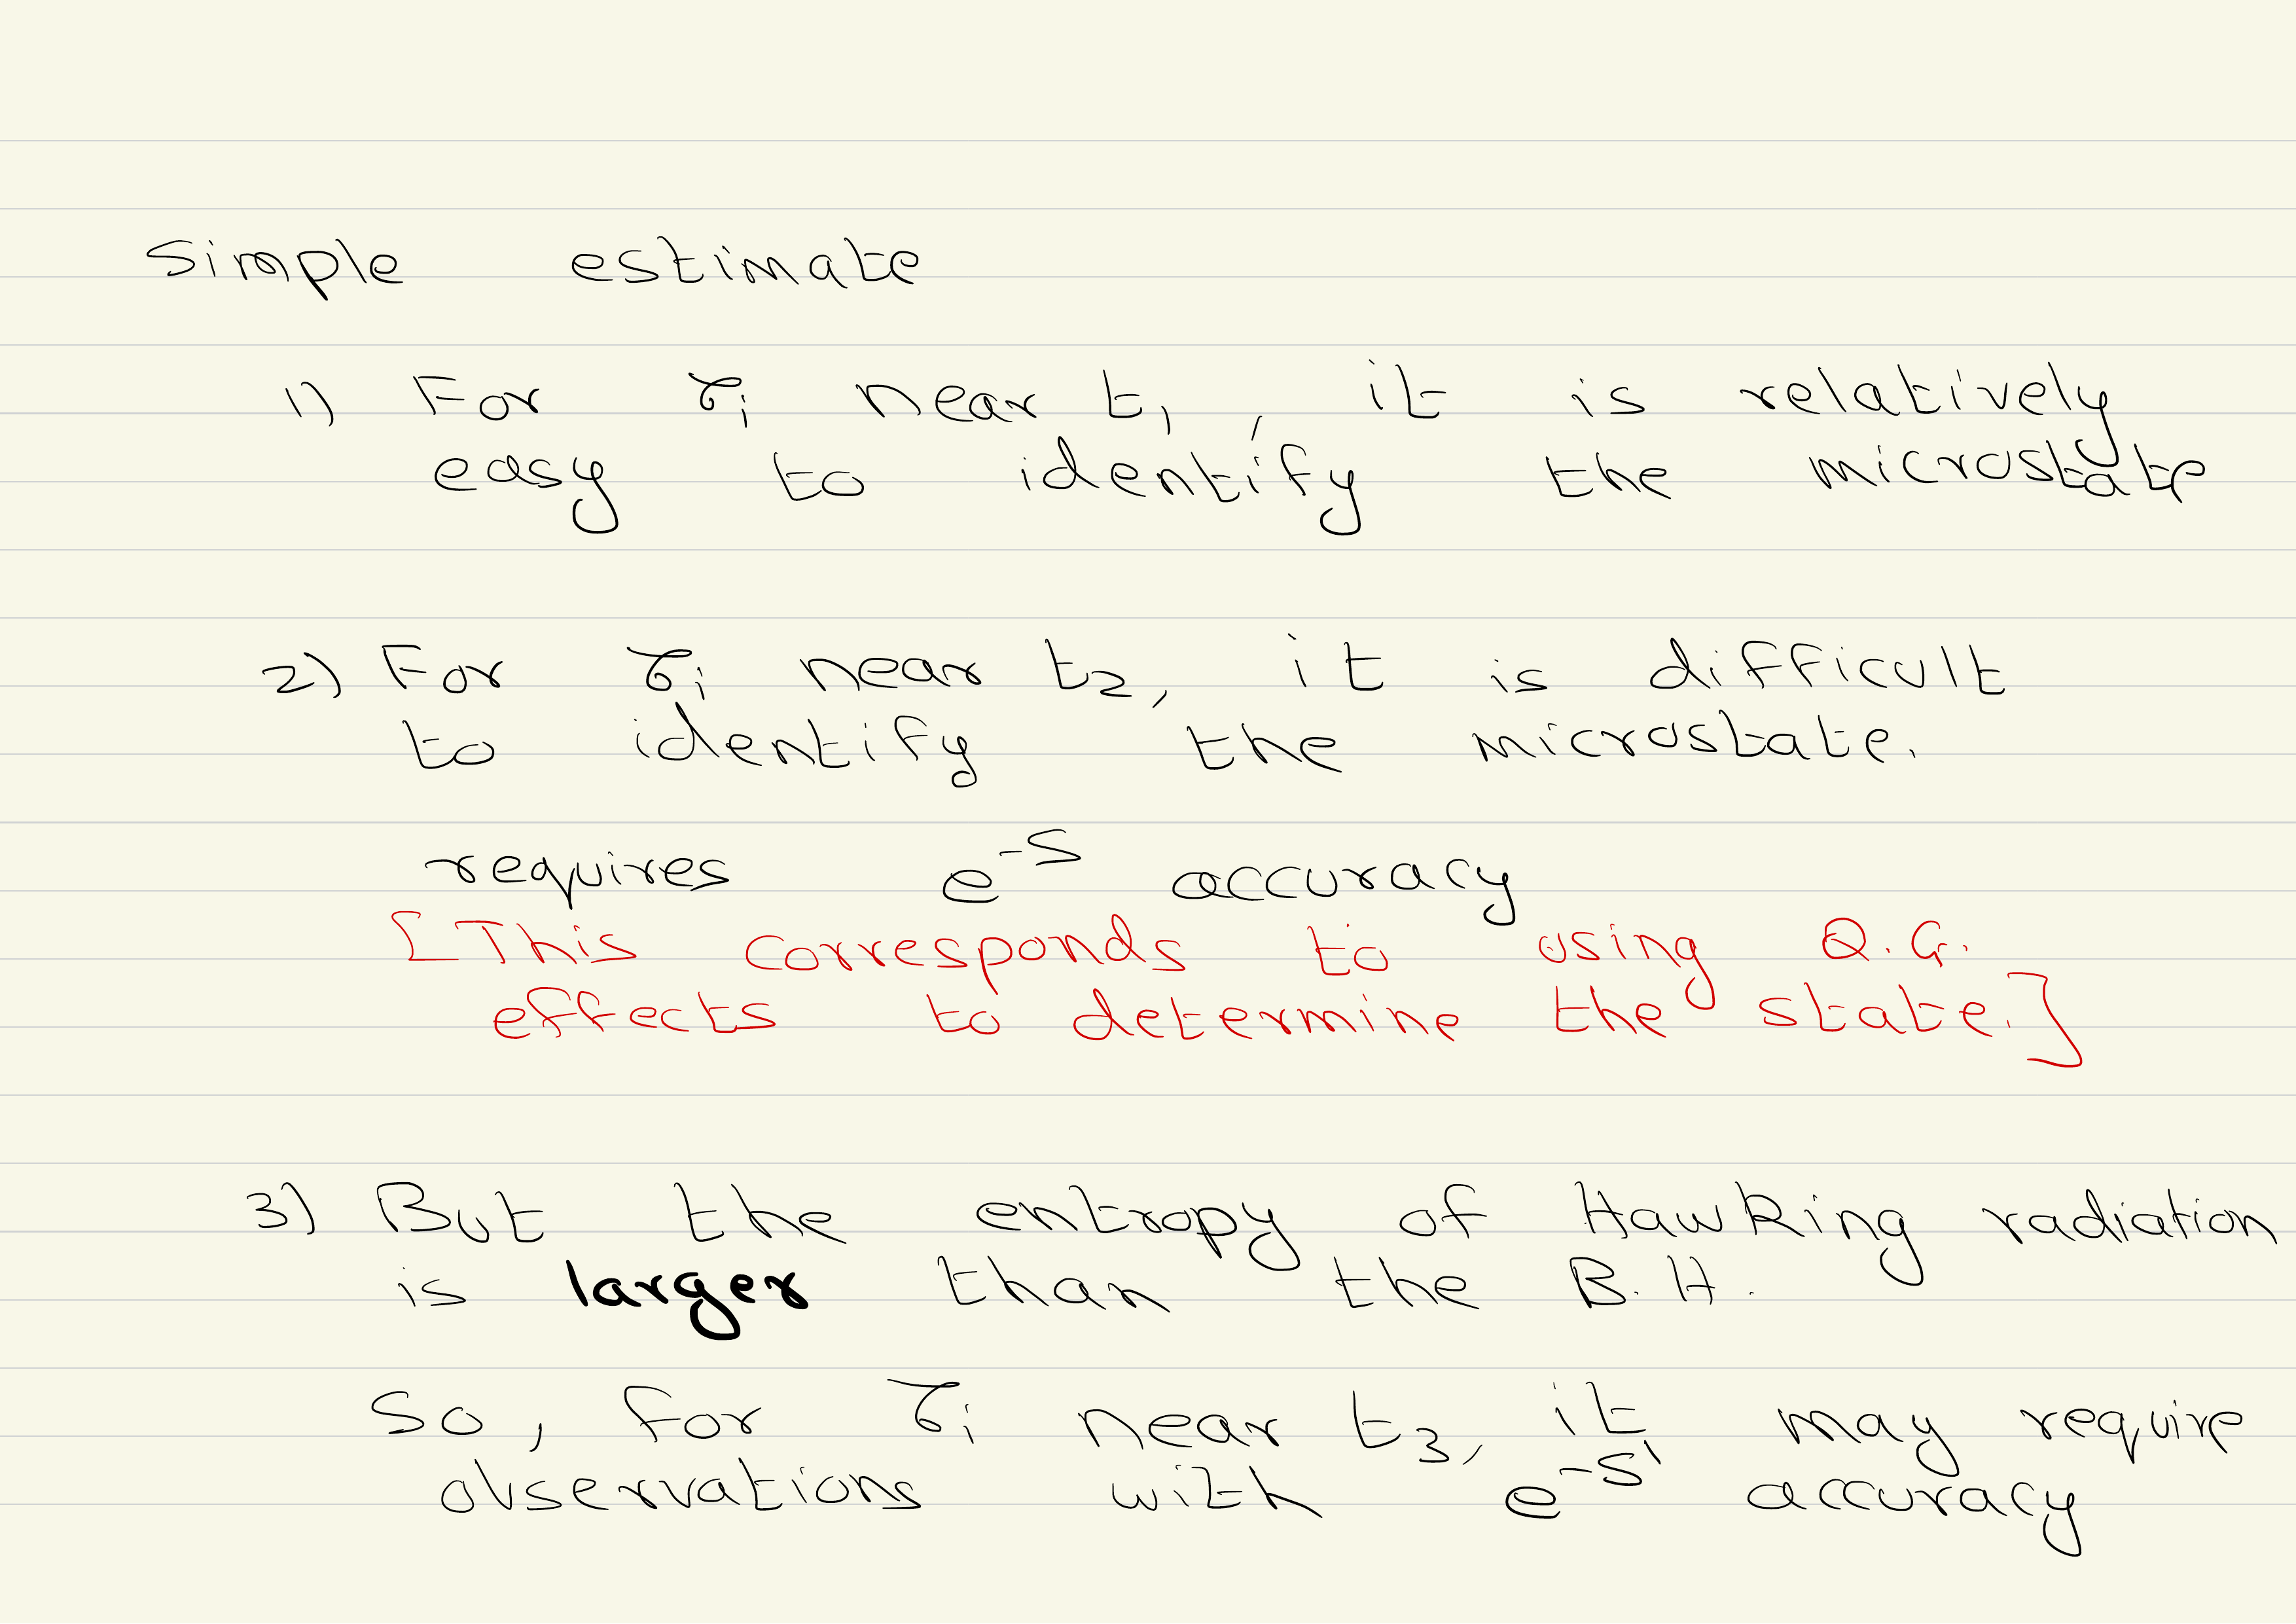 Simple estimate
1) For τᵢ near t₁, it is relatively
easy to identify the microstate
2) For τᵢ near t₂, it is difficult
to identify the microstate.
requires e⁻ˢ accuracy
[This corresponds to using Q.G.
effects to determine the state.]
3) But the entropy of Hawking radiation
is larger than the B.H.
So, for τᵢ near t₃, it may require
observations with e^{-S'} accuracy